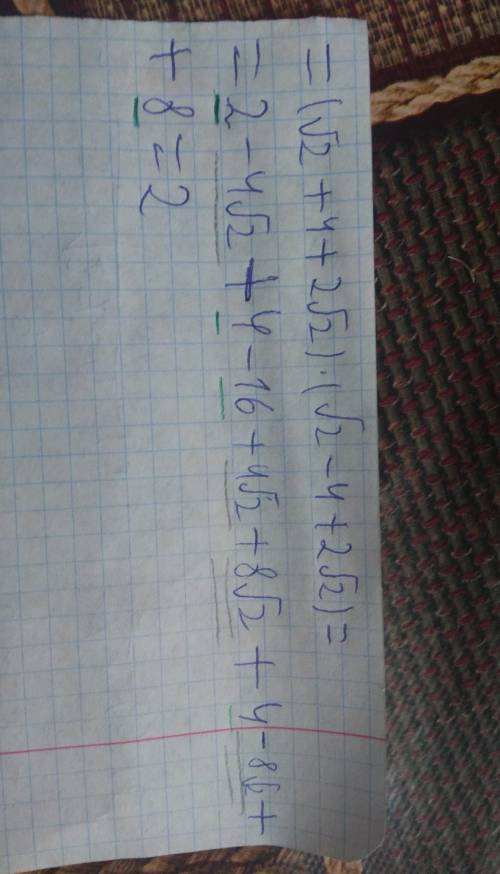 = (√2 + 4 + 2√2) · (√2 - 4 + 2√2) =
= 2 - 4√2 + 4 - 16 + 4√2 + 8√2 + 4 - 8√2 +
+ 8 = 2